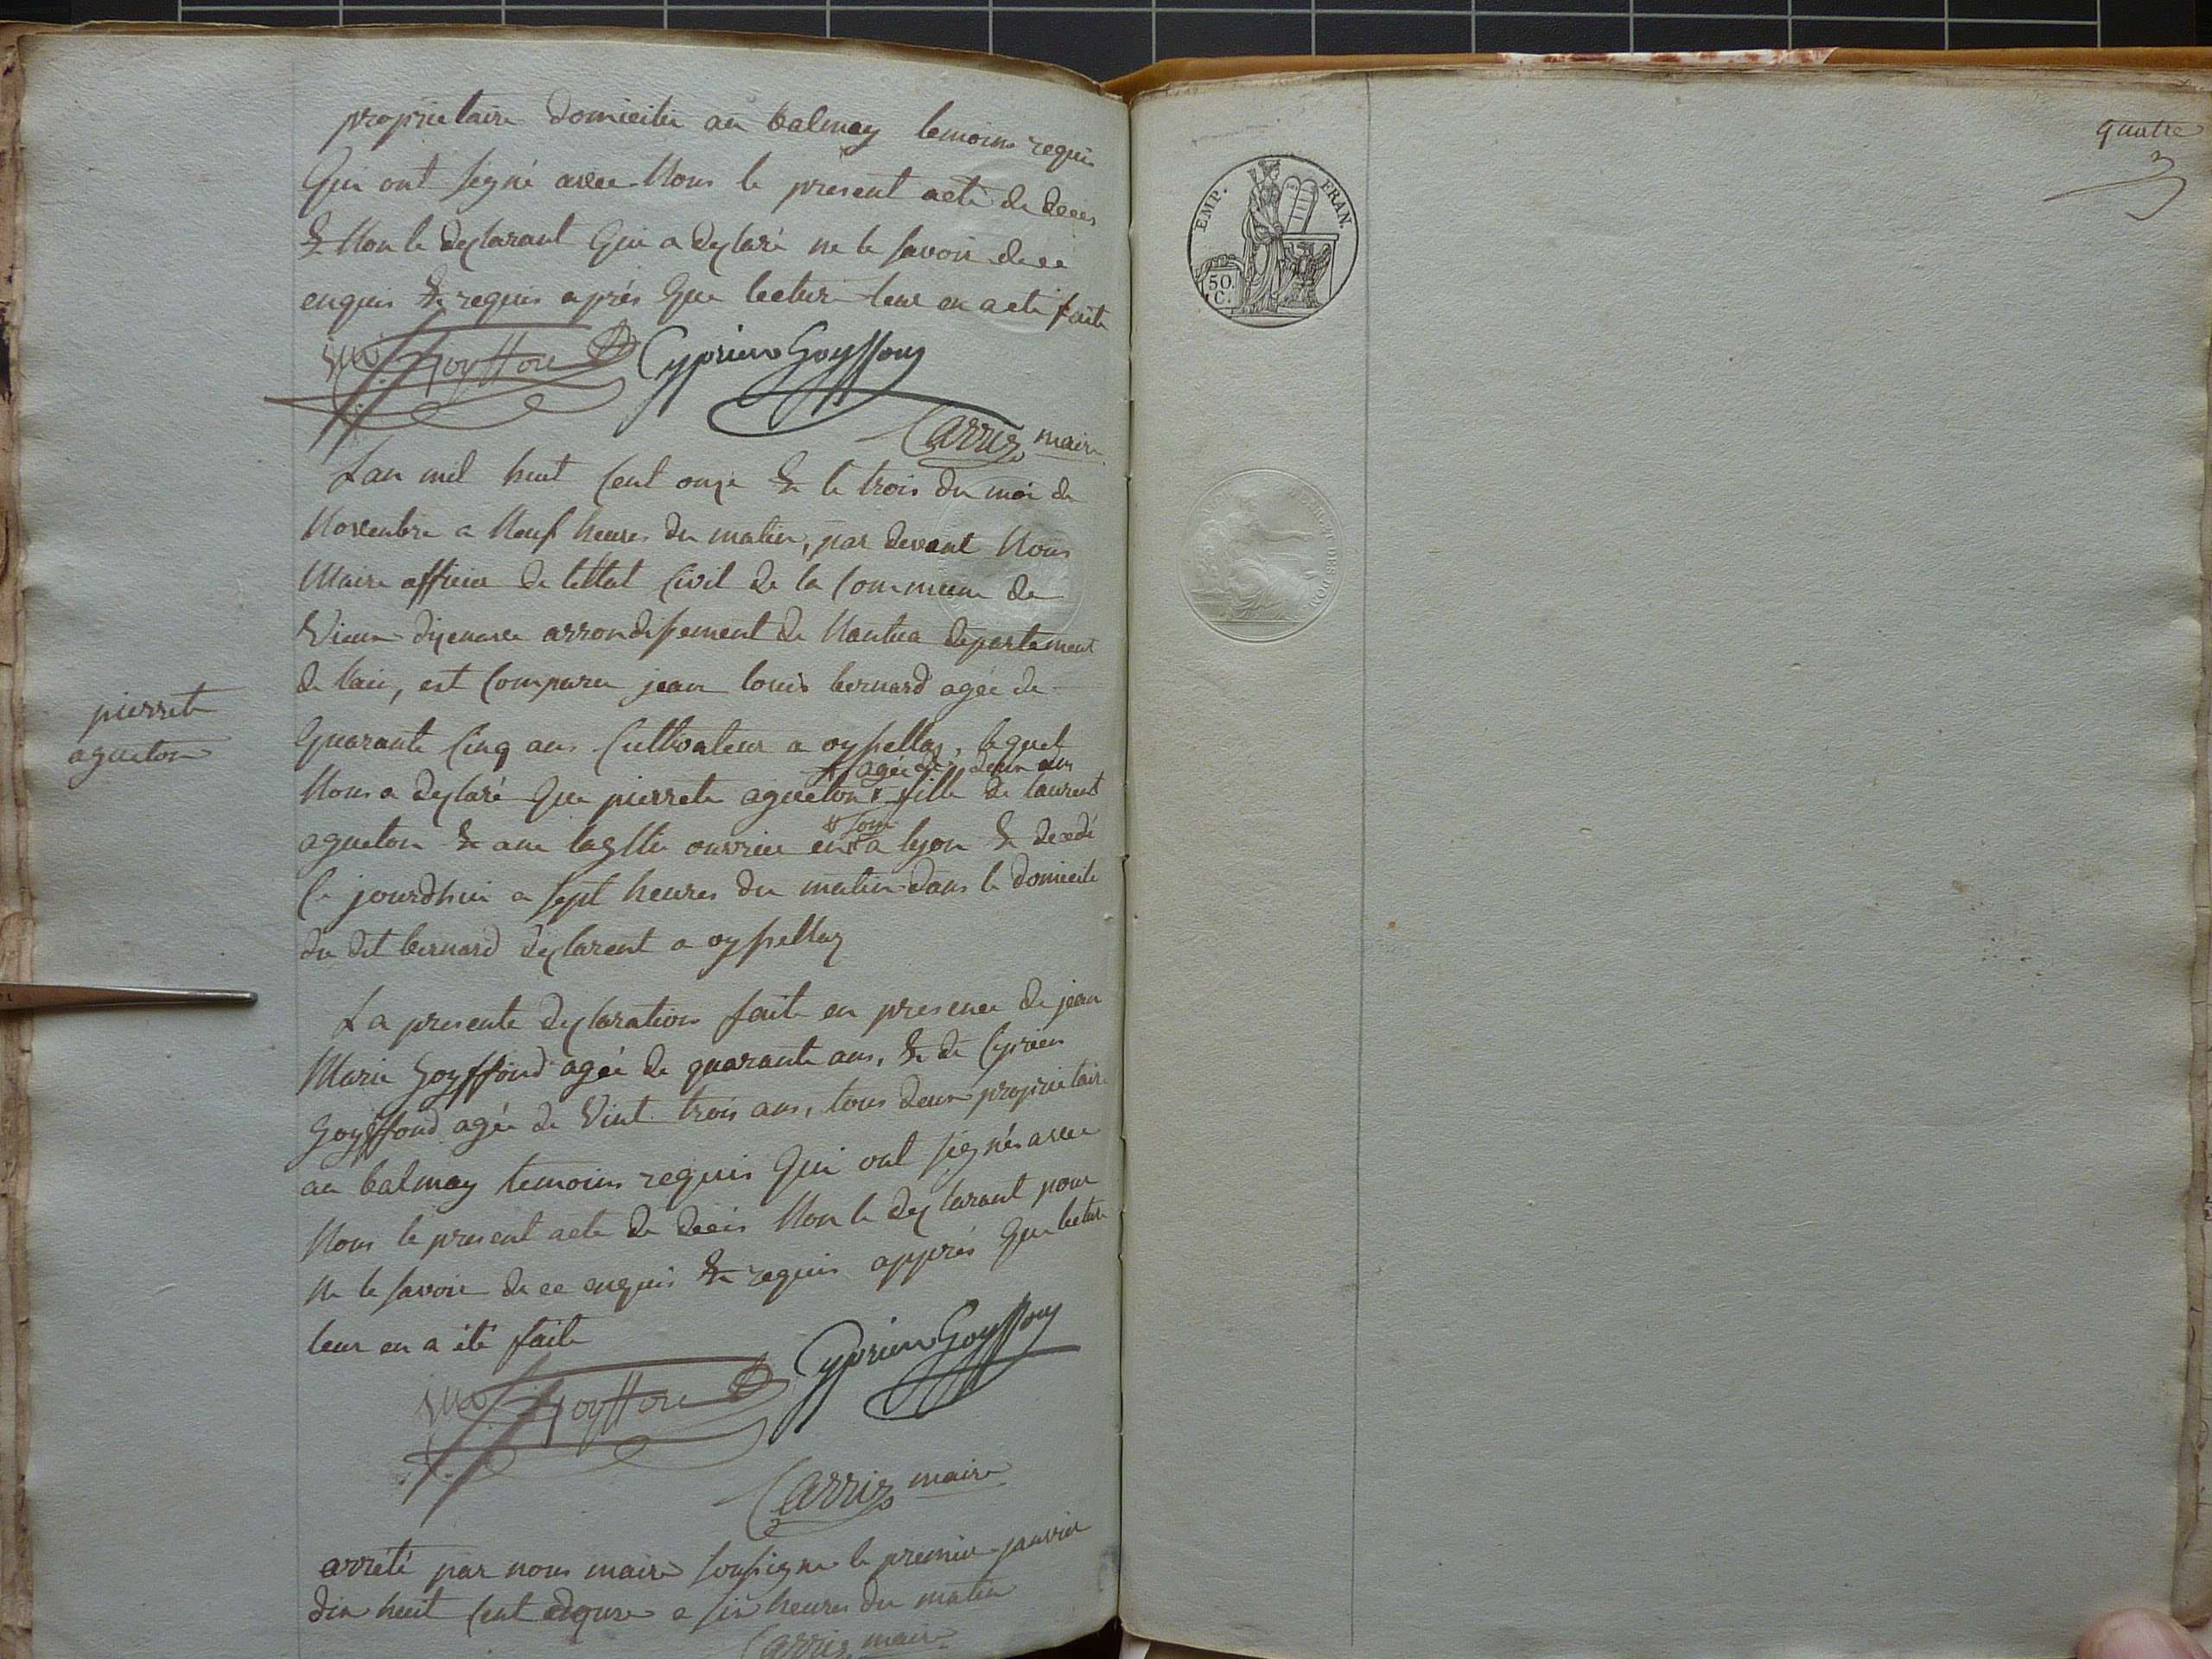 proprietaire domicilie au balmay temoins requis
Qui ont signé avec Nous le present acte de deces
& Non le declarant Qui a declaré ne le savoir de ce
enquis & requis après Que lecture leur en a eté faite
Goyffon Cyprien Goyffon
Carriz maire
Lan mil huit Cent onze & le trois du moi de
Novembre a Neuf heures du matin, par devant Nous
Maire officier de lettat Civil de la Commune de
Vieux dizenave arrondissement de Nantua departement
de lain, est Comparu jean louis bernard agée de
pierrete
agueton
Quarante Cinq ans Cultivateur a oysellaz, lequel
agée de deux ans
Nous a declaré Que pierrete agueton fille de laurent
agueton & ane ouvrier en a lyon & decedé
Ce jourdhui a sept heures du matin dans le domicile
du dit bernard declarent a oysellaz
La presente declaration faite en presence de jean
Marie Goyffond agée de quarante ans, & de Cyprien
Goyffond agée de Vint trois ans, tous deux proprietaire
au balmay temoins requis Qui ont signés avec
Nous le present acte de decès Non le declarant pour
Ne le savoir de ce enquis & requis apprés Que lecture
leur en a été faite
Goyffon Cyprien Goyffon
Carriz maire
arrété par nous maire soussigne le premier janvier
dix huit Cent douze a six heures du matin
Carriz maire
quatre
EMP. FRAN.
50.
C.